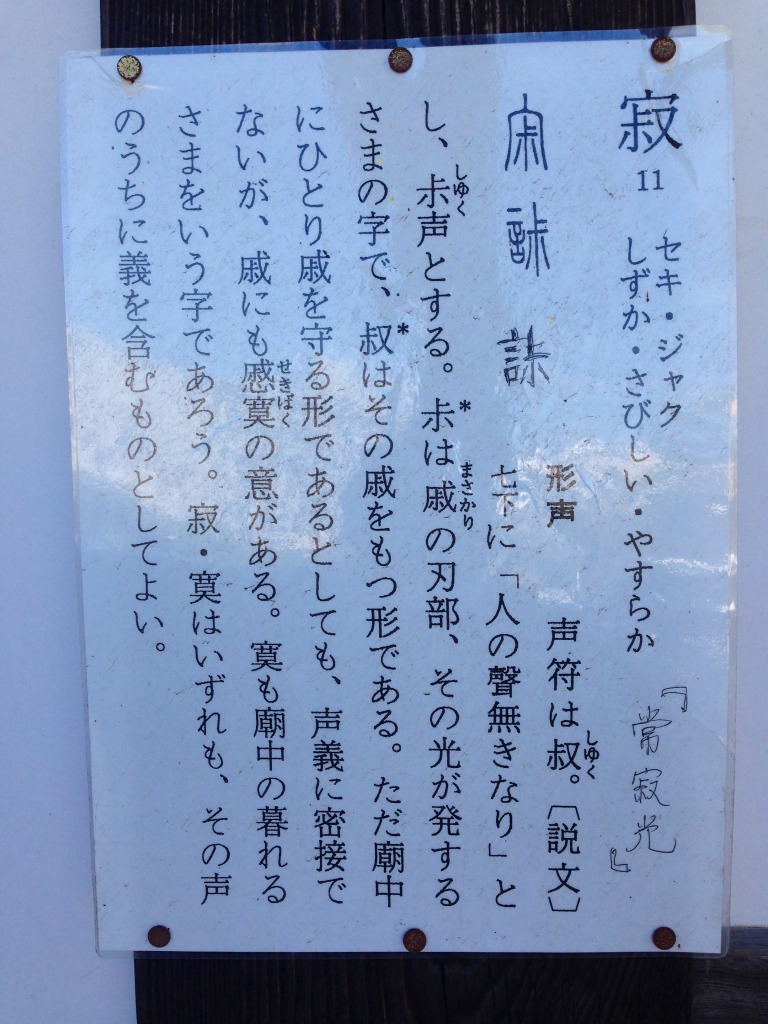 寂 11
セキ・ジャク
しずか・さびしい・やすらか
『常寂光』
形声 声符は叔。〔説文〕
七下に「人の聲無きなり」と
し、尗声とする。尗は戚の刃部、その光が発する
さまの字で、叔はその戚をもつ形である。ただ廟中
にひとり戚を守る形であるとしても、声義に密接で
ないが、戚にも慼寞の意がある。寞も廟中の暮れる
さまをいう字であろう。寂・寞はいずれも、その声
のうちに義を含むものとしてよい。